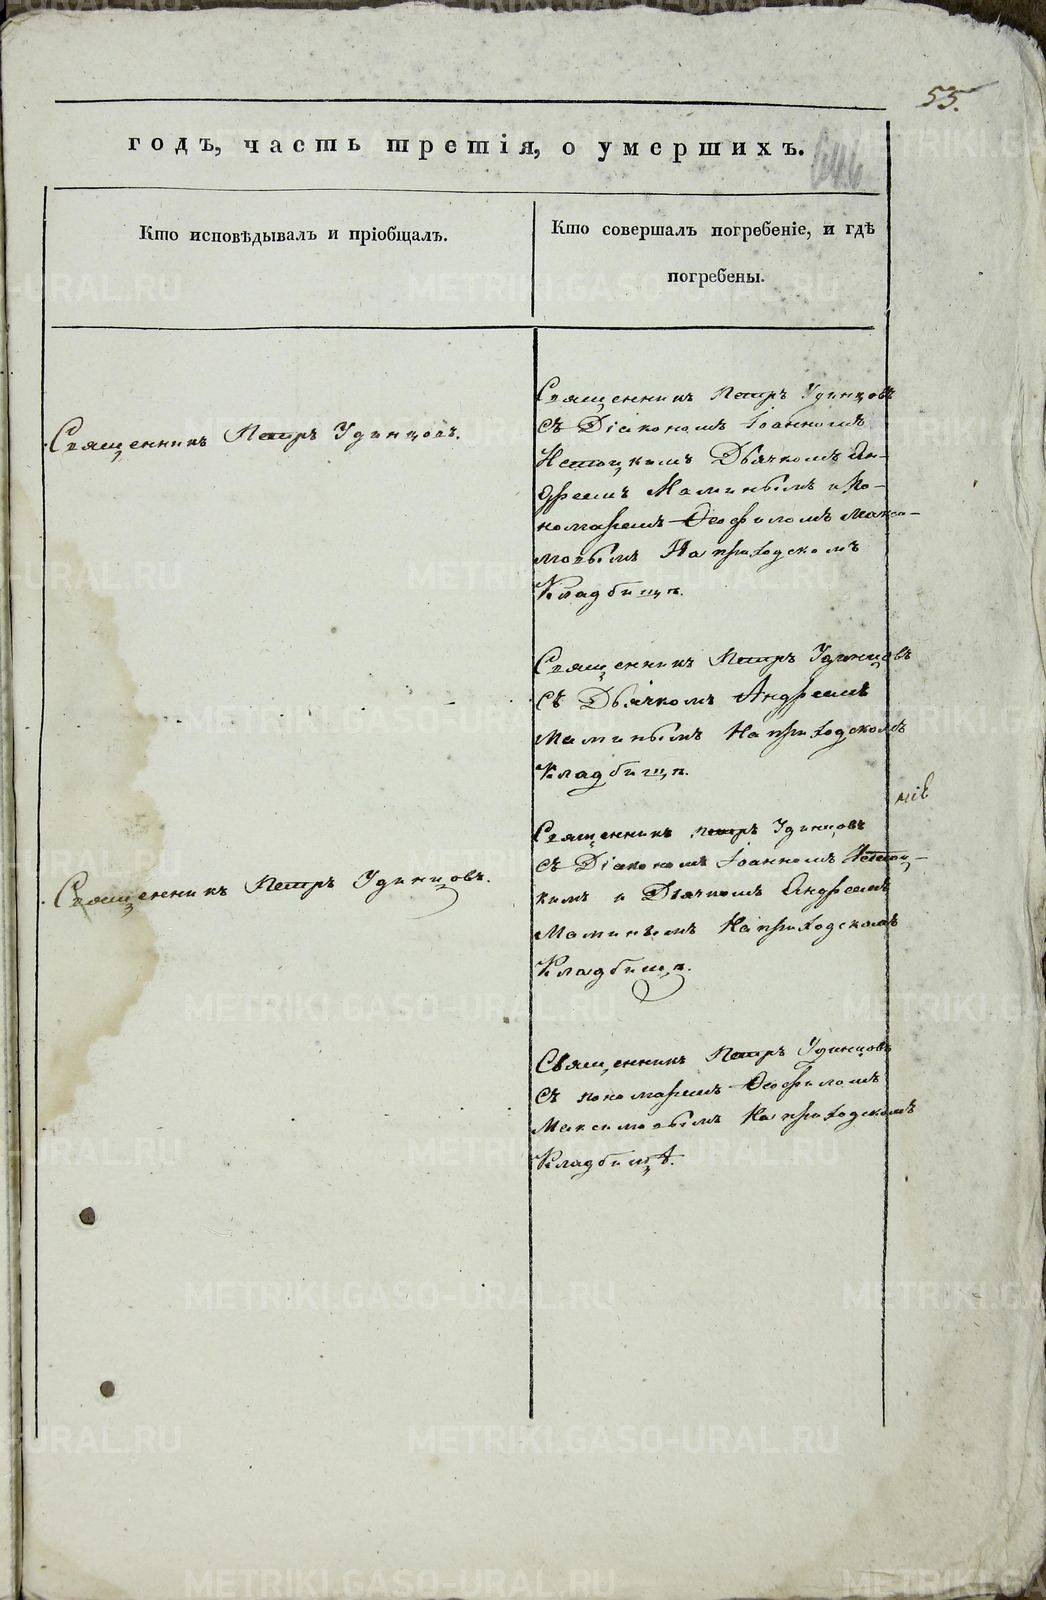 55.
годъ, часть третія, о умершихъ.
646
Кто исповѣдывалъ и пріобщалъ.
Кто совершалъ погребеніе, и гдѣ
погребены.
Священникъ Петръ Удинцовъ.
Священникъ Петръ Удинцовъ
съ Діакономъ Іоанномъ
Дьячкомъ Ан-
дреемъ Маминымъ и По-
номаремъ Ѳеофиломъ Макси-
мовымъ На приходскомъ
Кладбищѣ.
Священникъ Петръ Удинцовъ
съ Дьячкомъ Андреемъ
Маминымъ На приходскомъ
Кладбищѣ.
Священникъ Петръ Удинцовъ.
Священникъ Петръ Удинцовъ
съ Діакономъ Іоанномъ
кимъ и Дьячкомъ Андреемъ
Маминымъ На приходскомъ
Кладбищѣ.
Священникъ Петръ Удинцовъ
съ пономаремъ Ѳеофиломъ
Максимовымъ На приходскомъ
Кладбищѣ.
METRIKI.GASO-URAL.RU